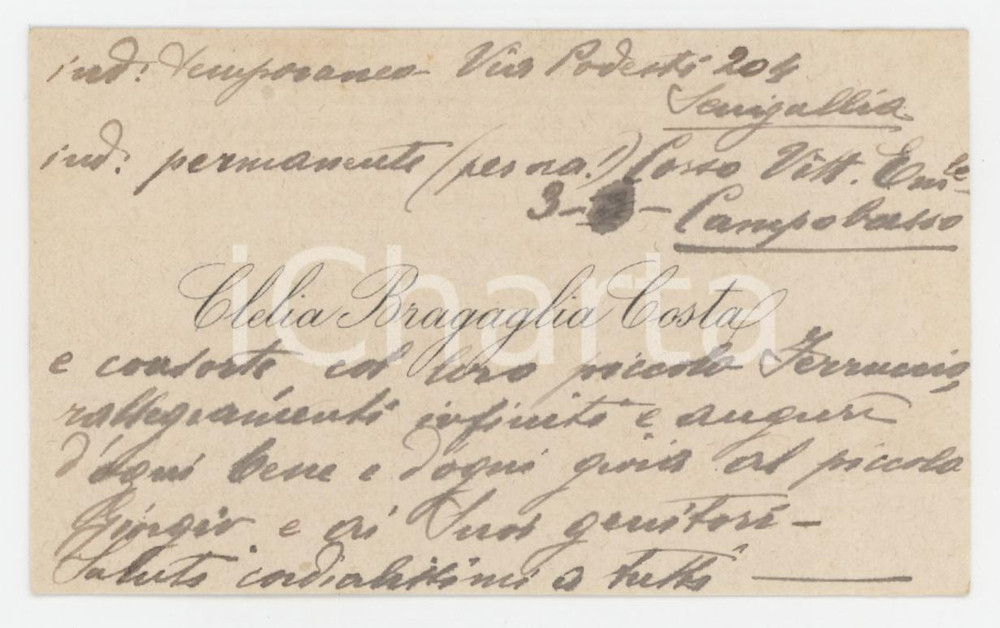 ind: temporaneo - Via Podesti 204
Senigallia
ind: permanente (per ora!) Corso Vitt. Emle
3 - - Campobasso
iCharta
Clelia Bragaglia Costa
e consorte, col loro piccolo Ferruccio,
rallegramenti infiniti e auguri
d'ogni bene e d'ogni gioia al piccolo
Giorgio e ai Suoi genitori -
Saluti cordialissimi a tutti